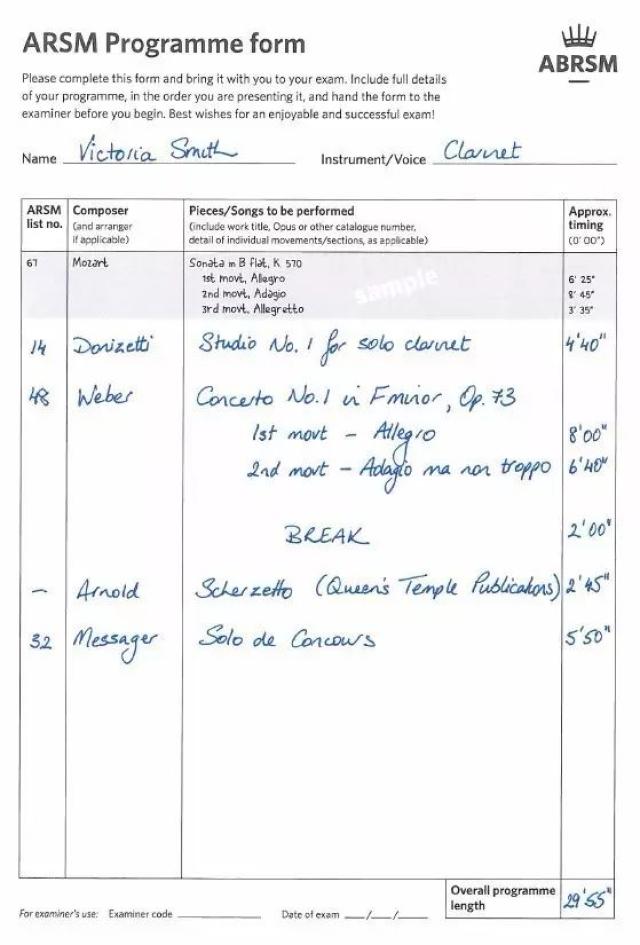 ARSM Programme form
ABRSM
Please complete this form and bring it with you to your exam. Include full details
of your programme, in the order you are presenting it, and hand the form to the
examiner before you begin. Best wishes for an enjoyable and successful exam!
Name Victoria Smith Instrument/Voice Clarinet
ARSM list no. Composer (and arranger if applicable) Pieces/Songs to be performed (include work title, Opus or other catalogue number, detail of individual movements/sections, as applicable) Approx. timing (0' 00")
61 Mozart Sonata in B flat, K 570
1st movt, Allegro 6' 25"
2nd movt, Adagio 8' 45"
3rd movt, Allegretto 3' 35"
sample
14 Donizetti Studio No. 1 for solo clarinet 4'40"
48 Weber Concerto No. 1 in F minor, Op. 73
1st movt – Allegro 8'00"
2nd movt – Adagio ma non troppo 6'40"
BREAK 2'00"
– Arnold Scherzetto (Queen's Temple Publications) 2'45"
32 Messager Solo de Concours 5'50"
Overall programme length 29'55"
For examiner's use: Examiner code Date of exam / /